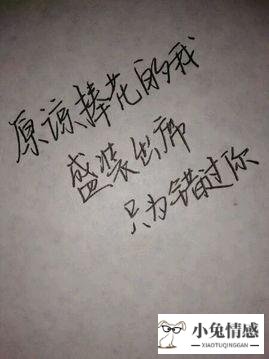 原谅捧花的我
盛装出席
只为错过你
小兔情感
XIAOTUQINGGAN